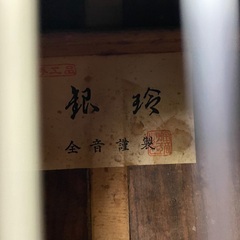 銀玲
全音謹製